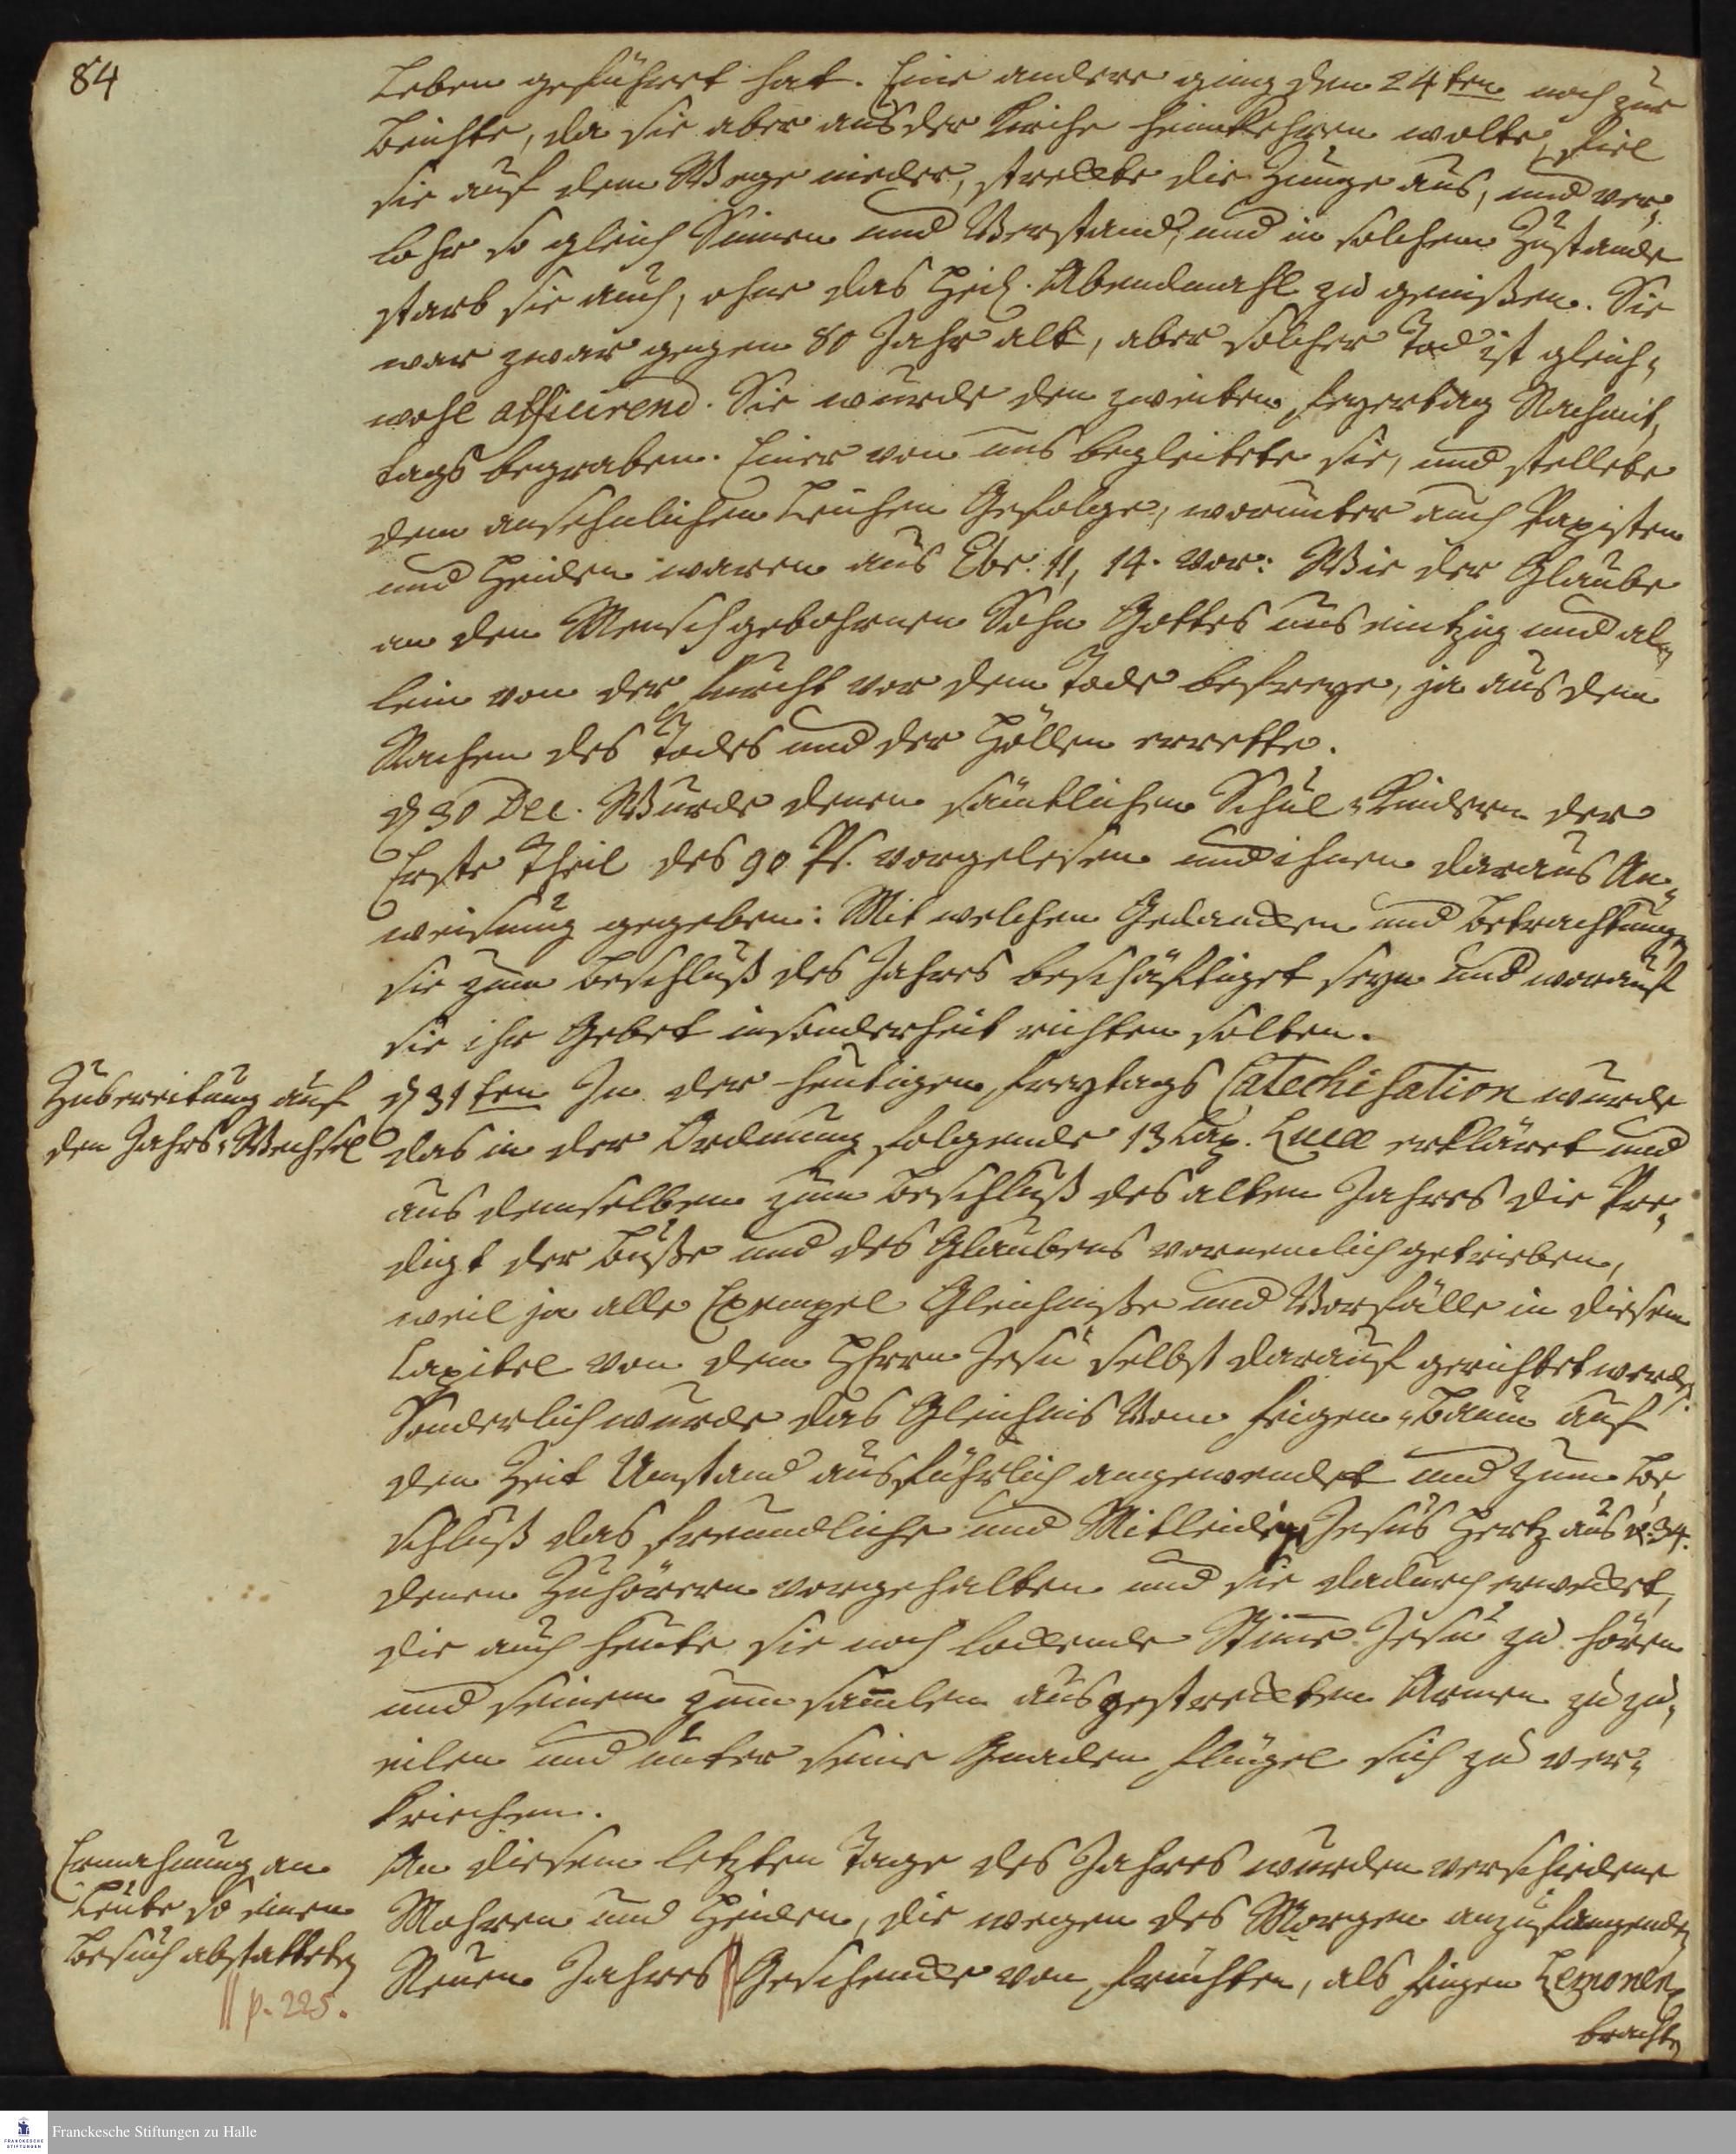 84
Leben geführet hat. Eine andere ging den 24ten noch zur
Beichte, da sie aber aus der Kirche heimkehren wolte, fiel
sie auf dem Wege nieder, streckte die Zunge aus, und ver-
lohr so gleich Sinnen und Verstand, und in solchem Zustande
starb sie auch, ohne das Heil. Abendmahl zu genießen. Sie
war zwar gegen 80 Jahr alt, aber solcher Tod ist gleich-
wohl afficirend. Sie wurde den zweiten Feyertag Nachmit-
tags begraben. Einer von uns begleitete sie, und stellete
dem ansehnlichen Leichen Gefolge, worunter auch Papisten
und Heiden waren aus Ebr. 11, 14. vor: Wie der Glaube
an den Mensch gebohrnen Sohn Gottes uns eintzig und al-
lein von der Furcht vor dem Tode befreye, ja aus dem
Rachen des Todes und der Höllen errette.
d 30 Dec. Wurde denen sämtlichen Schul-Kindern der
Erste Theil des 90 Ps. vorgelesen und ihnen daraus An-
weisung gegeben: Mit welchen Gedancken und Betrachtungen
sie zum Beschluß des Jahres beschäftiget seyn und worauf
sie ihr Gebet insonderheit richten solten.
Zubereitung auf
den Jahrs-Wechsel
d 31ten In der heutigen Freytags Catechisation wurde
das in der Ordnung folgende 13 Cap. Lucæ erkläret und
aus demselben zum Beschluß des alten Jahres die Pre-
digt der Buße und des Glaubens vornemlich getrieben,
weil ja alle Exempel Gleichniße und Vorfälle in diesem
Capitel von dem HErrn Jesu selbst darauf gerichtet werden.
Sonderlich wurde das Gleichnis Vom Feigen-Baum auf
den Zeit Umstand ausführlich angewendet und zum Be-
schluß das freundliche und Mitleidige Jesus Hertz aus v. 34.
denen Zuhörern vorgehalten und sie dadurch erwecket,
die auch heute sie noch lockende Stimme Jesu zu hören
und seinen zum samlen ausgestreckten Armen zu zu-
eilen und unter seine Gnaden Flügel sich zu ver-
kriechen.
Ermahnung an
Leute so einen
Besuch abstatteten
|| p. 225.
An diesem letzten Tage des Jahres wurden verschiedene
Mohren und Heiden, die wegen des Morgen anzufangenden
Neuen Jahres || Geschencke von Früchten, als Feigen Lemonen
brachten